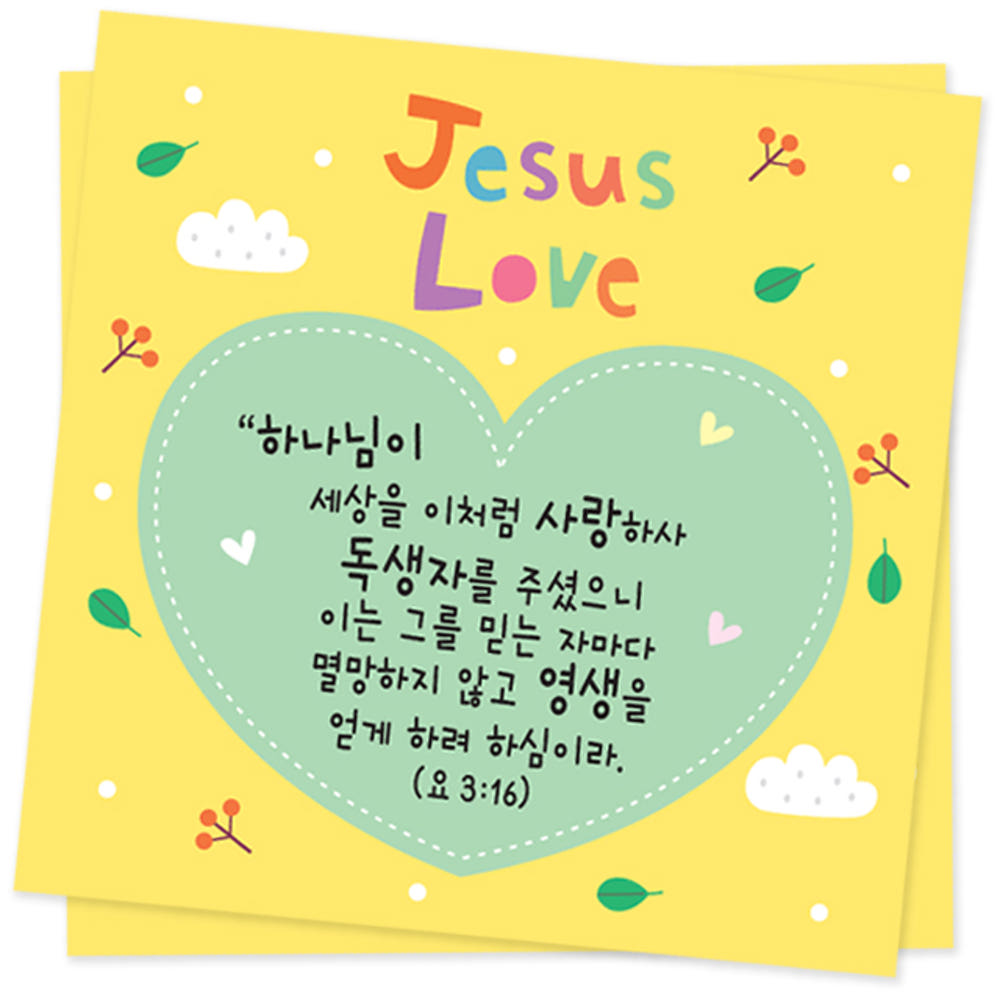 Jesus
Love
“하나님이
세상을 이처럼 사랑하사
독생자를 주셨으니
이는 그를 믿는 자마다
멸망하지 않고 영생을
얻게 하려 하심이라.
(요 3:16)